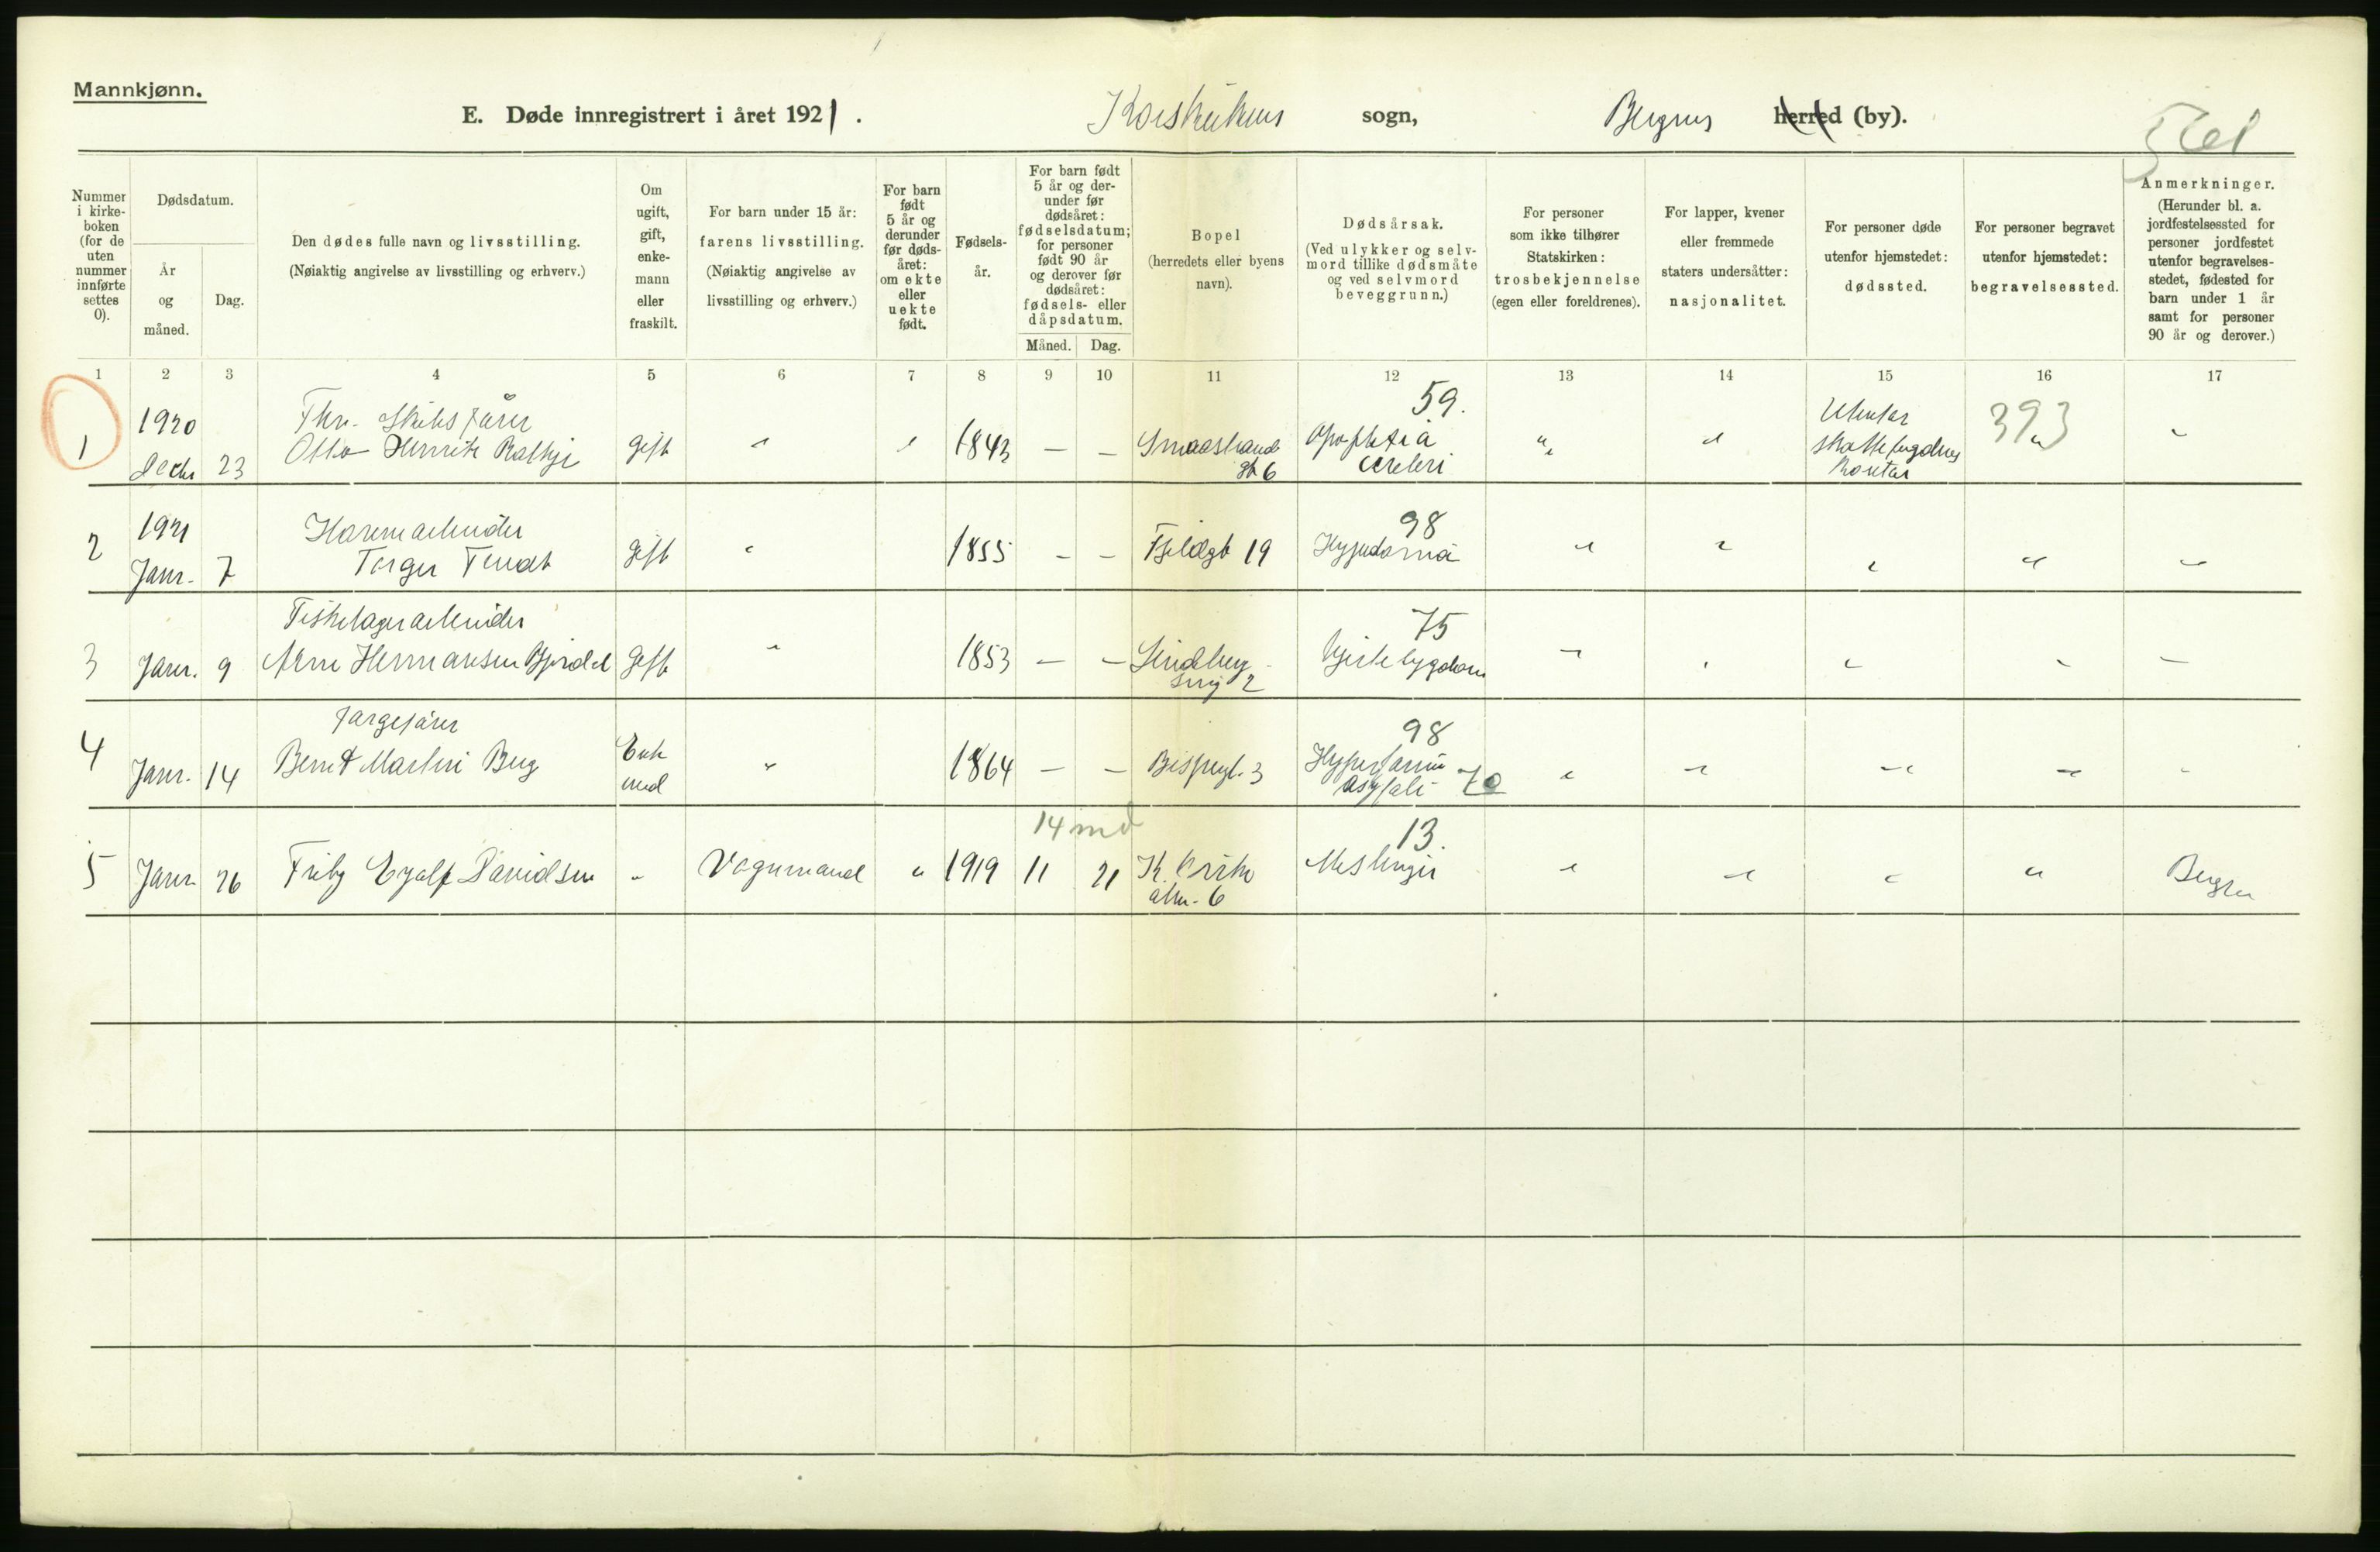 Mannkjønn.
E. Døde innregistrert i året 1921. Korskirkens sogn, Bergens herred (by).
Nummer i kirkeboken (for de uten nummer innførte settes 0).
Dødsdatum.
År og måned.
Dag.
Den dødes fulle navn og livsstilling.
(Nøiaktig angivelse av livsstilling og erhverv.)
Om ugift, gift, enkemann eller fraskilt.
For barn under 15 år:
farens livsstilling.
(Nøiaktig angivelse av livsstilling og erhverv.)
For barn født 5 år og derunder før dødsåret: om ekte eller uekte født.
Fødselsår.
For barn født 5 år og derunder før dødsåret: fødselsdatum; for personer født 90 år og derover før dødsåret: fødsels- eller dåpsdatum.
Måned. Dag.
Bopel
(herredets eller byens navn).
Dødsårsak.
(Ved ulykker og selvmord tillike dødsmåte og ved selvmord beveggrunn.)
For personer som ikke tilhører Statskirken:
trosbekjennelse
(egen eller foreldrenes).
For lapper, kvener eller fremmede staters undersåtter:
nasjonalitet.
For personer døde utenfor hjemstedet:
dødssted.
For personer begravet utenfor hjemstedet:
begravelsessted.
Anmerkninger.
(Herunder bl. a. jordfestelsessted for personer jordfestet utenfor begravelsesstedet, fødested for barn under 1 år samt for personer 90 år og derover.)
1 2 3 4 5 6 7 8 9 10 11 12 13 14 15 16 17
1 1920 Decbr 23
Fhv. Skibsfører
Otto Henrik
gift " " 1843 — —
Smaastrand
gt 6
59.
Apoplexia
cerebri
" "
393
"
2 1921 Janr. 7
Torger
gift " 1855 — —
19
98
" " " " "
3 Janr. 9
Fiskelagerarbeider
Arne Hermansen
gift " 1853 — —
Lindeberg
smg 2
75
Hjertesygdom
4 Janr. 14
Bernt Martin Berg
Enk
md
" 1864 — —
Bispegt. 3
98
70
14 md
5 Janr. 26
Davidsen
" Vognmand " 1919 11 21
K.
alm. 6
13.
Meslinger
" " " "
Bergen